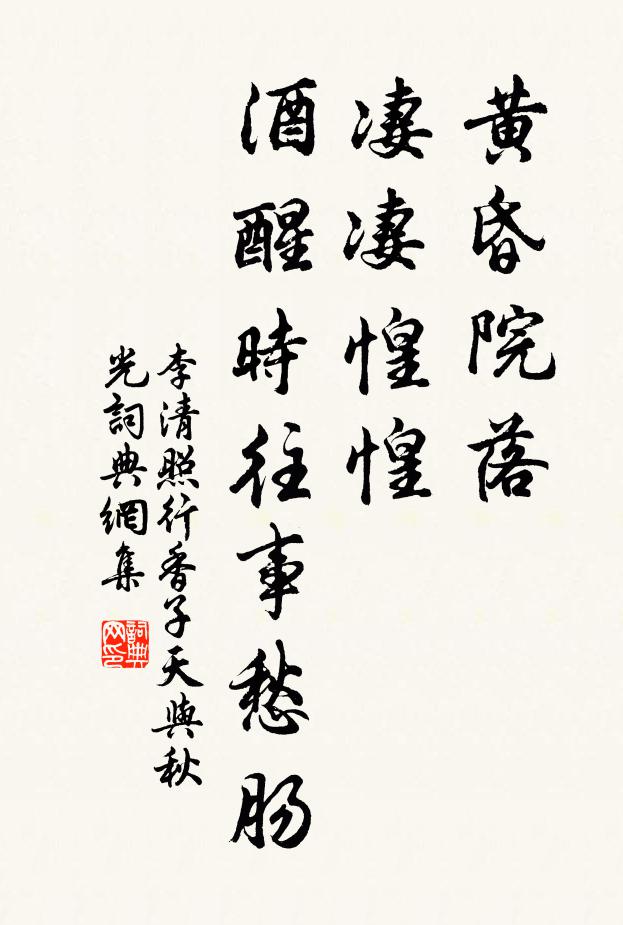 黄昏院落
凄凄惶惶
酒醒時往事愁肠
李清照行香子天與秋
光詞典網集
詞典网印